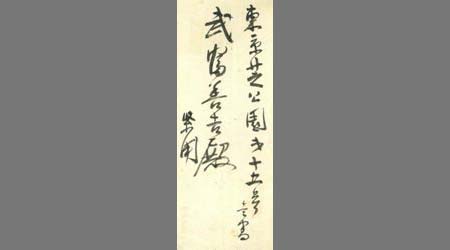 東京芝公園才十五号
武富善吉殿
緊用